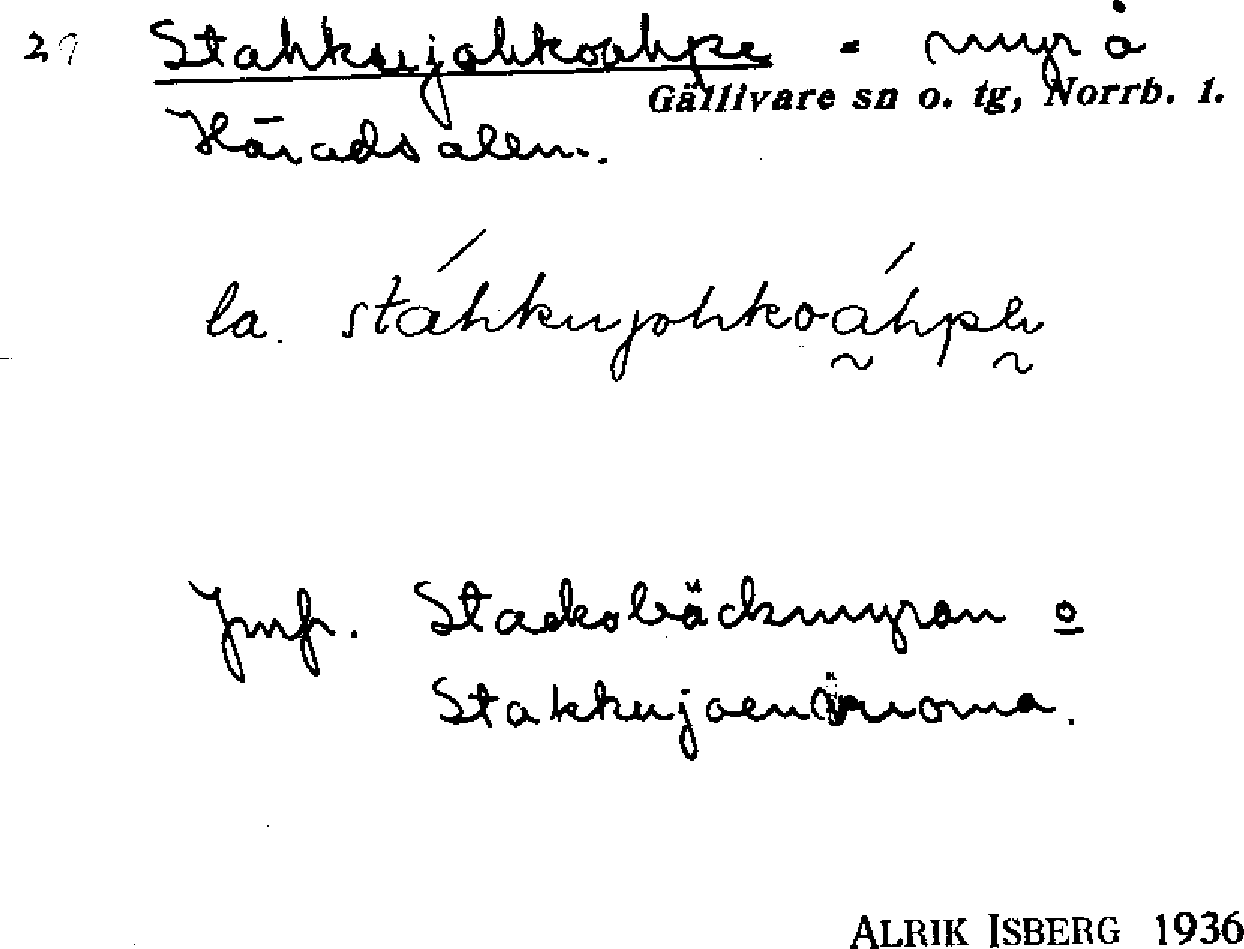 29 Stahkujohkoahpe - myr å
Gällivare sn o. tg, Norrb. l.
Häradsalem.
la. stáhkujohkoáhpe
Jmfr. Stackobäckmyran o
Stakkujoenvuoma.
ALRIK ISBERG 1936